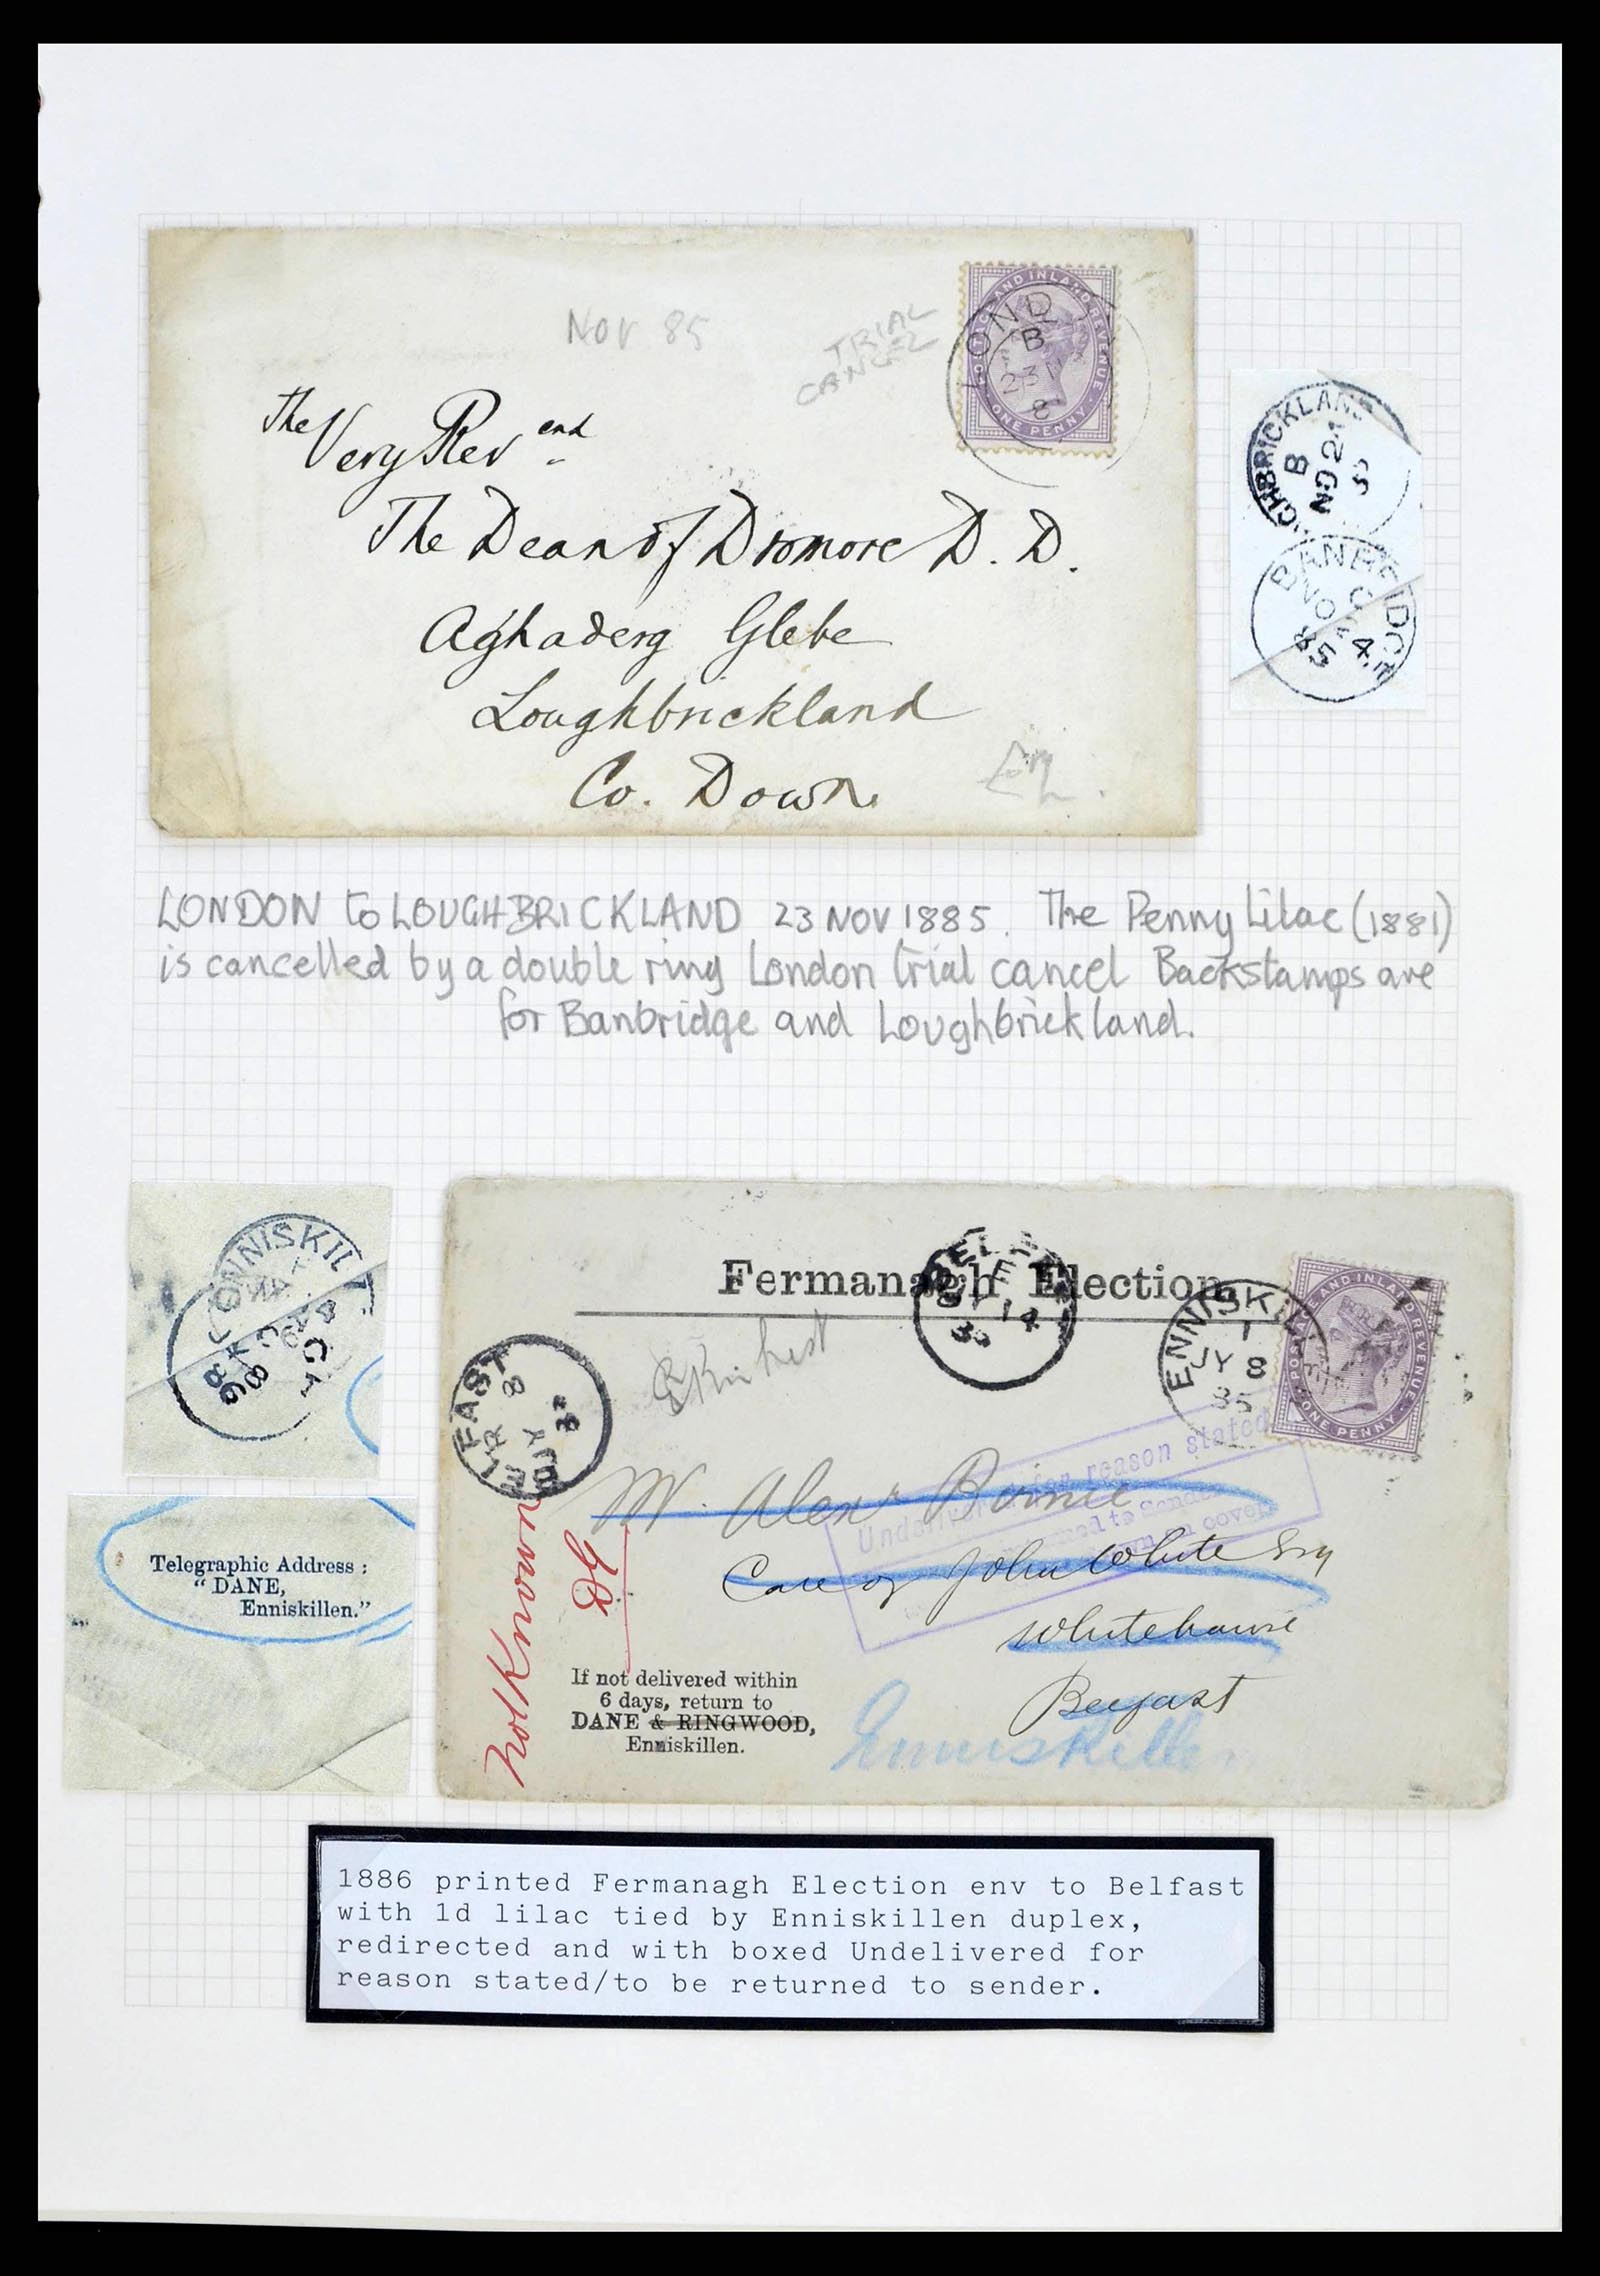 NOV 85
TRIAL
CANCEL
POSTAGE AND INLAND REVENUE
ONE PENNY
LOND
B
23 N
8
The Very Revend
The Dean of Dromore D. D.
Aghaderg Glebe
Loughbrickland
Co. Down
GHBRICKLAND
B
NO 24
BANBRIDGE
NO
85
LONDON to LOUGHBRICKLAND 23 NOV 1885. The Penny Lilac (1881)
is cancelled by a double ring London trial cancel Backstamps are
for Banbridge and Loughbrickland.
ENNISKILL
86
Telegraphic Address:
"DANE,
Enniskillen."
Fermanagh Election
BELFAST
JY 8
ENNISKILL
1
JY 8
POSTAGE AND INLAND REVENUE
ONE PENNY
Undelivered for reason stated
Mr. Alexr
Care of John White Esq
Whitehouse
Belfast
Enniskillen
Not Known
If not delivered within
6 days, return to
DANE & RINGWOOD,
Enniskillen.
1886 printed Fermanagh Election env to Belfast
with 1d lilac tied by Enniskillen duplex,
redirected and with boxed Undelivered for
reason stated/to be returned to sender.